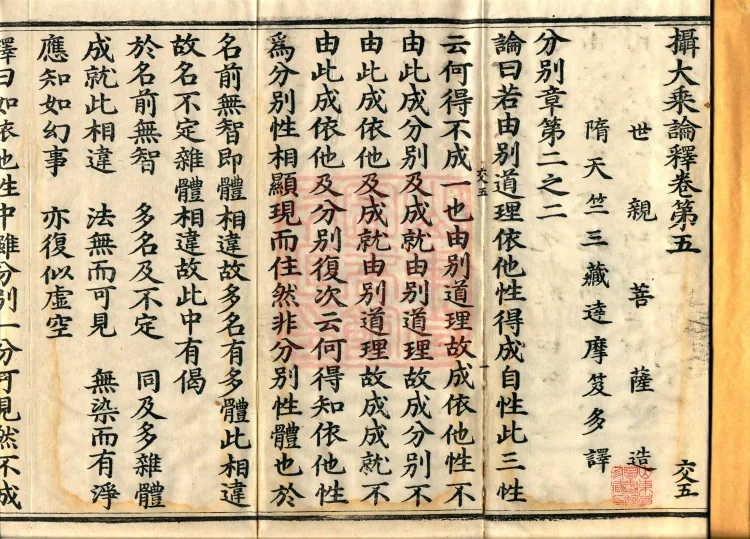 攝大乘論釋卷第五
交五
世親菩薩造
隋天竺三藏達摩笈多譯
分別章第二之二
論曰若由別道理依他性得成自性此三性
交五
云何得不成一也由別道理故成依他性不
由此成分別及成就由別道理故成分別不
由此成依他及成就由別道理故成成就不
由此成依他及分別復次云何得知依他性
爲分別性相顯現而住然非分別性體也於
名前無智即體相違故多名有多體此相違
故名不定雜體相違故此中有偈
於名前無智 多名及不定 同及多雜體
成就此相違 法無而可見 無染而有淨
應知如幻事 亦復似虛空
釋曰如依他性中雖分別一分可見然不成